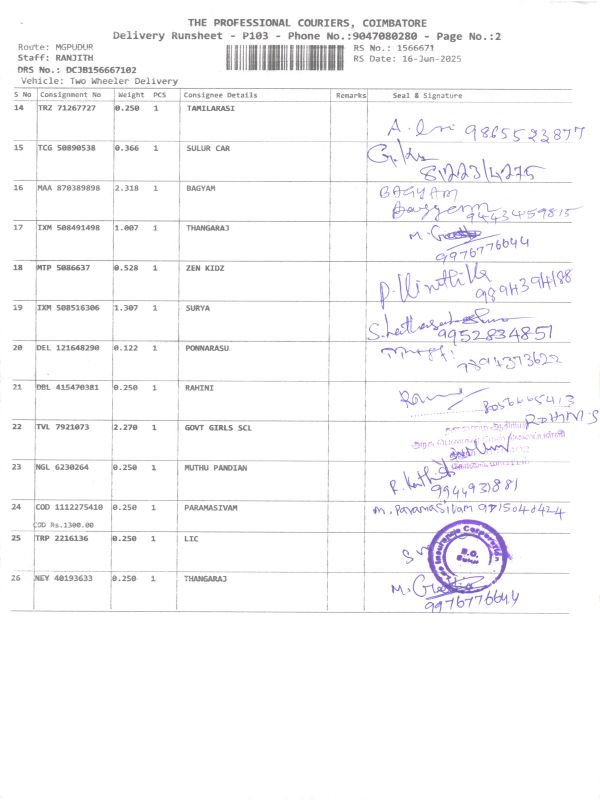 THE PROFESSIONAL COURIERS, COIMBATORE
Delivery Runsheet - P103 - Phone No.:9047080280 - Page No.:2
Route: MGPUDUR RS No.: 1566671
Staff: RANJITH RS Date: 16-Jun-2025
DRS No.: DCJB156667102
Vehicle: Two Wheeler Delivery
S No Consignment No Weight PCS Consignee Details Remarks Seal & Signature
14 TRZ 71267727 0.250 1 TAMILARASI
9865523877
15 TCG 50890538 0.366 1 SULUR CAR
16 MAA 870389898 2.318 1 BAGYAM
BAGYAM
9443459815
17 IXM 508491498 1.007 1 THANGARAJ
9976776644
18 MTP 5086637 0.528 1 ZEN KIDZ
19 IXM 508516306 1.307 1 SURYA
9952834851
20 DEL 121648290 0.122 1 PONNARASU
21 DBL 415470381 0.250 1 RAHINI
22 TVL 7921073 2.270 1 GOVT GIRLS SCL
23 NGL 6230264 0.250 1 MUTHU PANDIAN
9944931881
24 COD 1112275410 0.250 1 PARAMASIVAM
m. Paramasivam
COD Rs.1300.00
25 TRP 2216136 0.250 1 LIC
26 NEY 40193633 0.250 1 THANGARAJ
9976776644